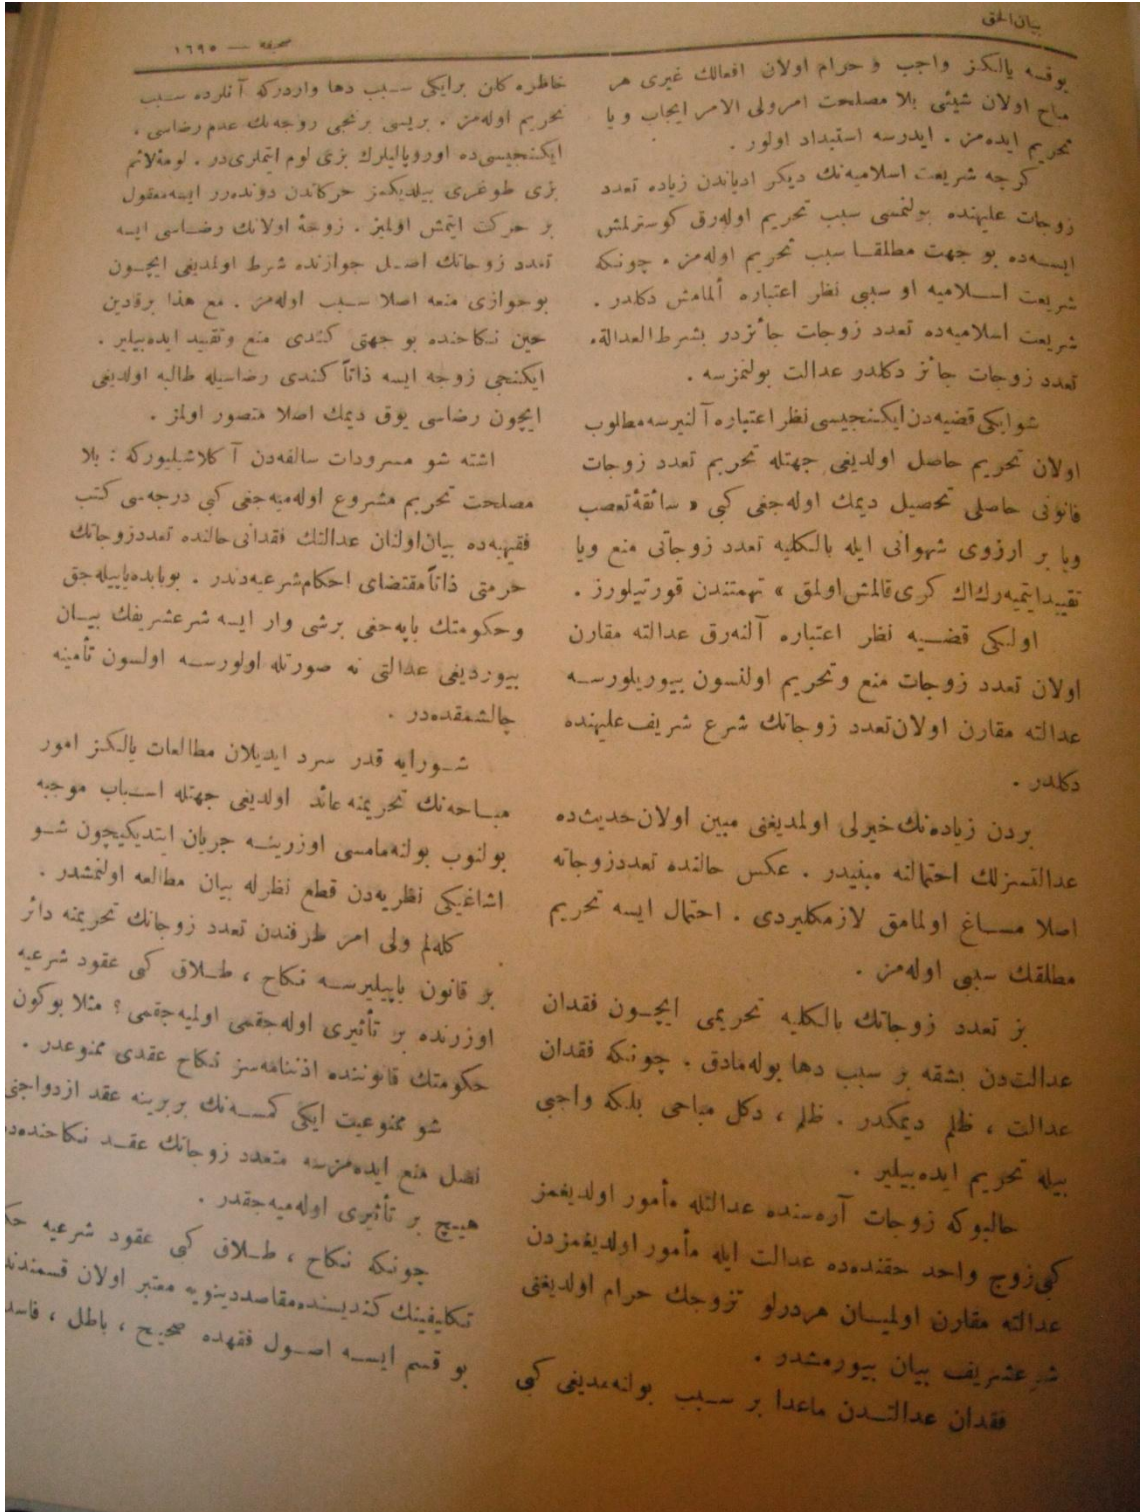 بیان‌الحق
صحیفه — ١٦٩٥
یوقسه یالکز واجب و حرام اولان افعالك غیری هر
مباح اولان شیئی بلا مصلحت امرولی الامر ایجاب ویا
تحریم ایده‌مز . ایدرسه استبداد اولور .
کرچه شریعت اسلامیه‌نك دیکر ادیاندن زیاده تعدد
زوجات علیهنده بولنمسی سبب تحریم اوله‌رق کوسترلمش
ایسه‌ده بو جهت مطلقا سبب تحریم اوله‌مز . چونکه
شریعت اسلامیه او سببی نظر اعتباره ألمامش دکلدر .
شریعت اسلامیه‌ده تعدد زوجات جائزدر بشرط العدالة.
تعدد زوجات جائز دکلدر عدالت بولنمزسه .
شوایکی قضیه‌دن ایکنجیسی نظر اعتباره آلنیرسه مطلوب
اولان تحریم حاصل اولدیغی جهتله تحریم تعدد زوجات
قانونی حاصلی تحصیل دیمك اوله‌جغی کبی « سائقۀ تعصب
ویا بر ارزوی شهوانی ایله بالکلیه تعدد زوجاتی منع ویا
تقیید ایتمیه‌رك اك کری قالمش اولمق » تهمتندن قورتیلورز .
اولکی قضیه نظر اعتباره آلنه‌رق عدالته مقارن
اولان تعدد زوجات منع وتحریم اولنسون بیوریلورسه
عدالته مقارن اولان تعدد زوجاتك شرع شریف علیهنده
دکلدر .
بردن زیاده‌نك خیرلی اولمدیغنی مبین اولان حدیث‌ده
عدالتسزلك احتمالنه مبنیدر . عکس حالنده تعدد زوجاته
اصلا مساغ اولمامق لازمکلیردی . احتمال ایسه تحریم
مطلقك سببی اوله‌مز .
بز تعدد زوجاتك بالکلیه تحریمی ایچون فقدان
عدالت‌دن بشقه بر سبب دها بوله‌مادق . چونکه فقدان
عدالت ، ظلم دیمکدر . ظلم ، دکل مباحی بلکه واجبی
بیله تحریم ایده‌بیلیر .
حالبوکه زوجات آره‌سنده عدالتله مأمور اولدیغمز
کبی زوج واحد حقنده‌ده عدالت ایله مأمور اولدیغمزدن
عدالته مقارن اولمیان هردرلو تزوجك حرام اولدیغنی
شرعشریف بیان بیورمشدر .
فقدان عدالتدن ماعدا بر سبب بولنه‌مدیغی کبی
خاطره کلن برایکی سبب دها واردرکه آنلرده سبب
تحریم اوله‌مز . بریسی برنجی زوجه‌نك عدم رضاسی ،
ایکنجیسی‌ده اوروپالیلرك بزی لوم ایتملری‌در . لومۀ لائم
بزی طوغری بیلدیکمز حرکاتدن دوندەرر ایسه معقول
بر حرکت ایتمش اولمیز . زوجۀ اولانك رضاسی ایسه
تعدد زوجاتك اصل جوازنده شرط اولمدیغی ایچون
بوجوازی منعه اصلا سبب اوله‌مز . مع هذا برقادین
حین نکاحنده بو جهتی کندی منع وتقیید ایده‌بیلیر .
ایکنجی زوجه ایسه ذاتاً کندی رضاسیله طالبه اولدیغی
ایچون رضاسی یوق دیمك اصلا متصور اولمز .
اشته شو مسرودات سالفه‌دن آکلاشیلیورکه : بلا
مصلحت تحریم مشروع اوله‌میه‌جغی کبی درجه‌سی کتب
فقهیه‌ده بیان اولنان عدالتك فقدانی حالنده تعددزوجاتك
حرمتی ذاتاً مقتضای احکام شرعیه‌دندر . بوبابده یاپیله‌جق
وحکومتك یاپه‌جغی برشی وار ایسه شرعشریفك بیان
بیوردیغی عدالتی نه صورتله اولورسه اولسون تأمینه
چالشمقده‌در .
شورایه قدر سرد ایدیلان مطالعات یالکز امور
مباحه‌نك تحریمنه عائد اولدیغی جهتله اسباب موجبه
بولنوب بولنه‌مامسی اوزرینه جریان ایتدیکیچون شو
اشاغیکی نظریه‌دن قطع نظرله بیان مطالعه اولنمشدر .
کله‌لم ولی امر طرفندن تعدد زوجاتك تحریمنه دائر
بر قانون یاپیلیرسه نکاح ، طلاق کبی عقود شرعیه
اوزرنده بر تأثیری اوله‌جقمی اولمیه‌جقمی ؟ مثلا بوکون
حکومتك قانوننده اذننامه‌سز نکاح عقدی ممنوعدر .
شو ممنوعیت ایکی کمسه‌نك بربرینه عقد ازدواجنی
نصل منع ایده‌مزسه متعدد زوجاتك عقد نکاحنده‌ده
هیچ بر تأثیری اوله‌میه‌جقدر .
چونکه نکاح ، طلاق کبی عقود شرعیه
تکلیفینك کندیسنده مقاصددینویه معتبر اولان قسمندند
بو قسم ایسه اصول فقهده صحیح ، باطل ، فاسد